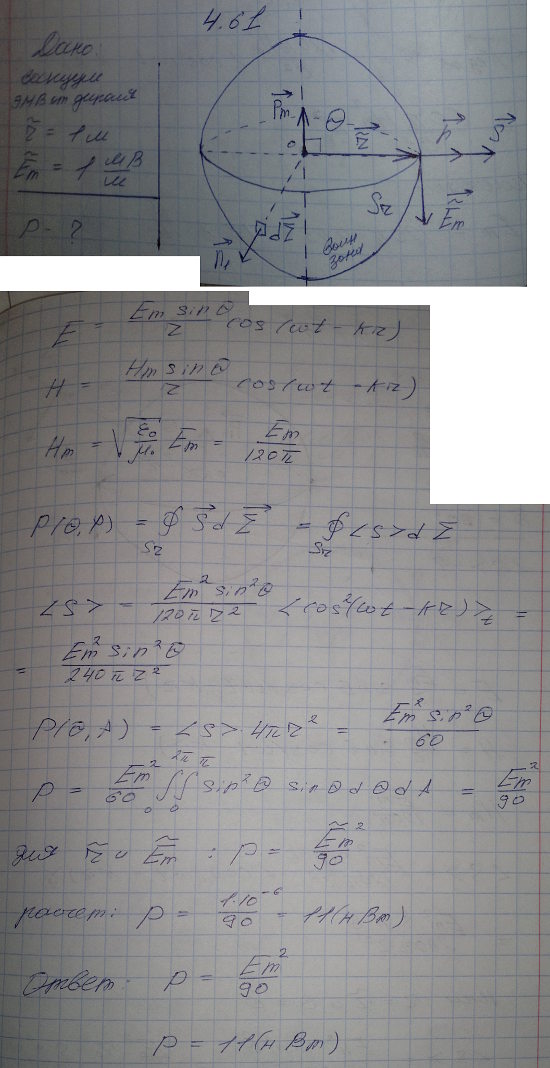 4.61
Дано:
секущую
ЭМВ от диполя
r̃ = 1 м
Ẽm = 1 мВ/м
P - ?
P⃗m
Θ
r⃗
h⃗
S⃗
o
Sr
Ẽm
n⃗1
dΣ⃗
Волн
зона
E = Em sinΘ / r cos(ωt - kr)
H = Hm sinΘ / r cos(ωt - kr)
Hm = √(ε0/μ0) Em = Em / 120π
P(Θ,A) = ∮Sr S⃗ dΣ⃗ = ∮Sr <S> dΣ
<S> = Em² sin²Θ / 120π r² <cos²(ωt - kr)>t =
= Em² sin²Θ / 240π r²
P(Θ,A) = <S> · 4πr² = Em² sin²Θ / 60
P = Em²/60 ∫₀^2π ∫₀^π sin²Θ sinΘ dΘ dA = Em²/90
для r̃ и Ẽm : P = Ẽm²/90
расчет: P = 1·10⁻⁶/90 = 11(нВт)
Ответ: P = Em²/90
P = 11(нВт)